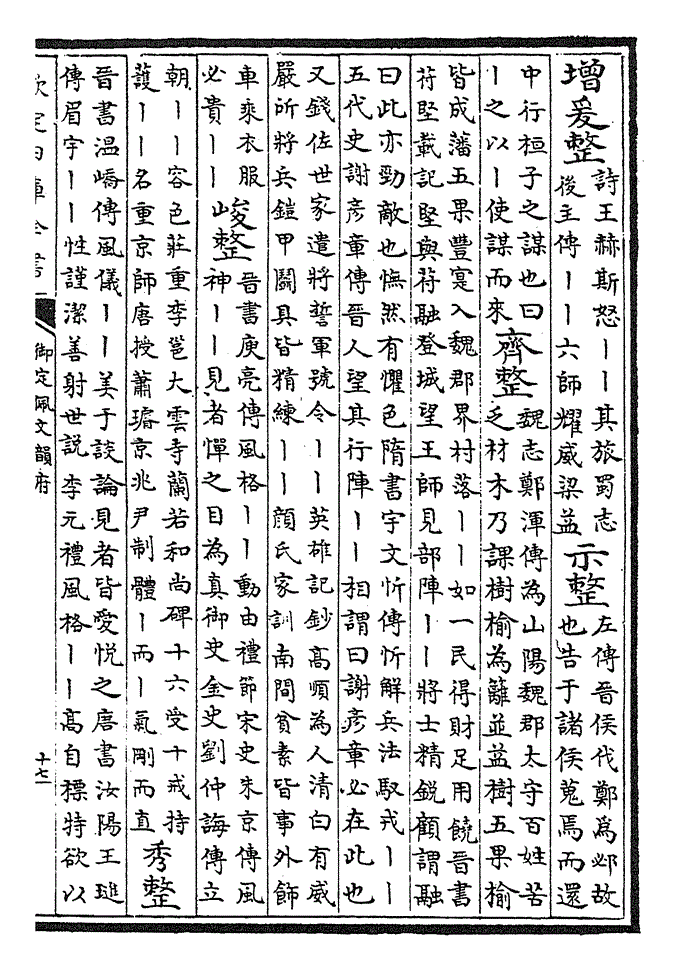 增爰整
詩王赫斯怒丨丨其旅蜀志
後主傳丨丨六師耀威梁益
示整
左傳晉侯伐鄭爲邲故
也告于諸侯蒐焉而還
中行桓子之謀也曰
丨之以丨使謀而來
齊整
魏志鄭渾傳為山陽魏郡太守百姓苦
乏材木乃課樹榆為籬並益樹五果榆
皆成藩五果豐寔入魏郡界村落丨丨如一民得財足用饒晉書
苻堅載記堅與苻融登城望王師見部陣丨丨將士精銳顧謂融
曰此亦勁敵也憮然有懼色隋書宇文忻傳忻解兵法馭戎丨丨
五代史謝彥章傳晉人望其行陣丨丨相謂曰謝彥章必在此也
又錢佐世家遣將誓軍號令丨丨英雄記鈔高順為人清白有威
嚴所將兵鎧甲鬭具皆精練丨丨顏氏家訓南間貧素皆事外飾
車乘衣服
必貴丨丨
峻整
晉書庾亮傳風格丨丨動由禮節宋史朱京傳風
神丨丨見者憚之目為真御史金史劉仲誨傳立
朝丨丨容色莊重李邕大雲寺蘭若和尚碑十六受十戒持
護丨丨名重京師唐授蕭璿京兆尹制體丨而丨氣剛而直
秀整
晉書温嶠傳風儀丨丨美于談論見者皆愛悅之唐書汝陽王璡
傳眉宇丨丨性謹潔善射世説李元禮風格丨丨高自標特欲以
欽定四庫全書
御定佩文韻府
十七